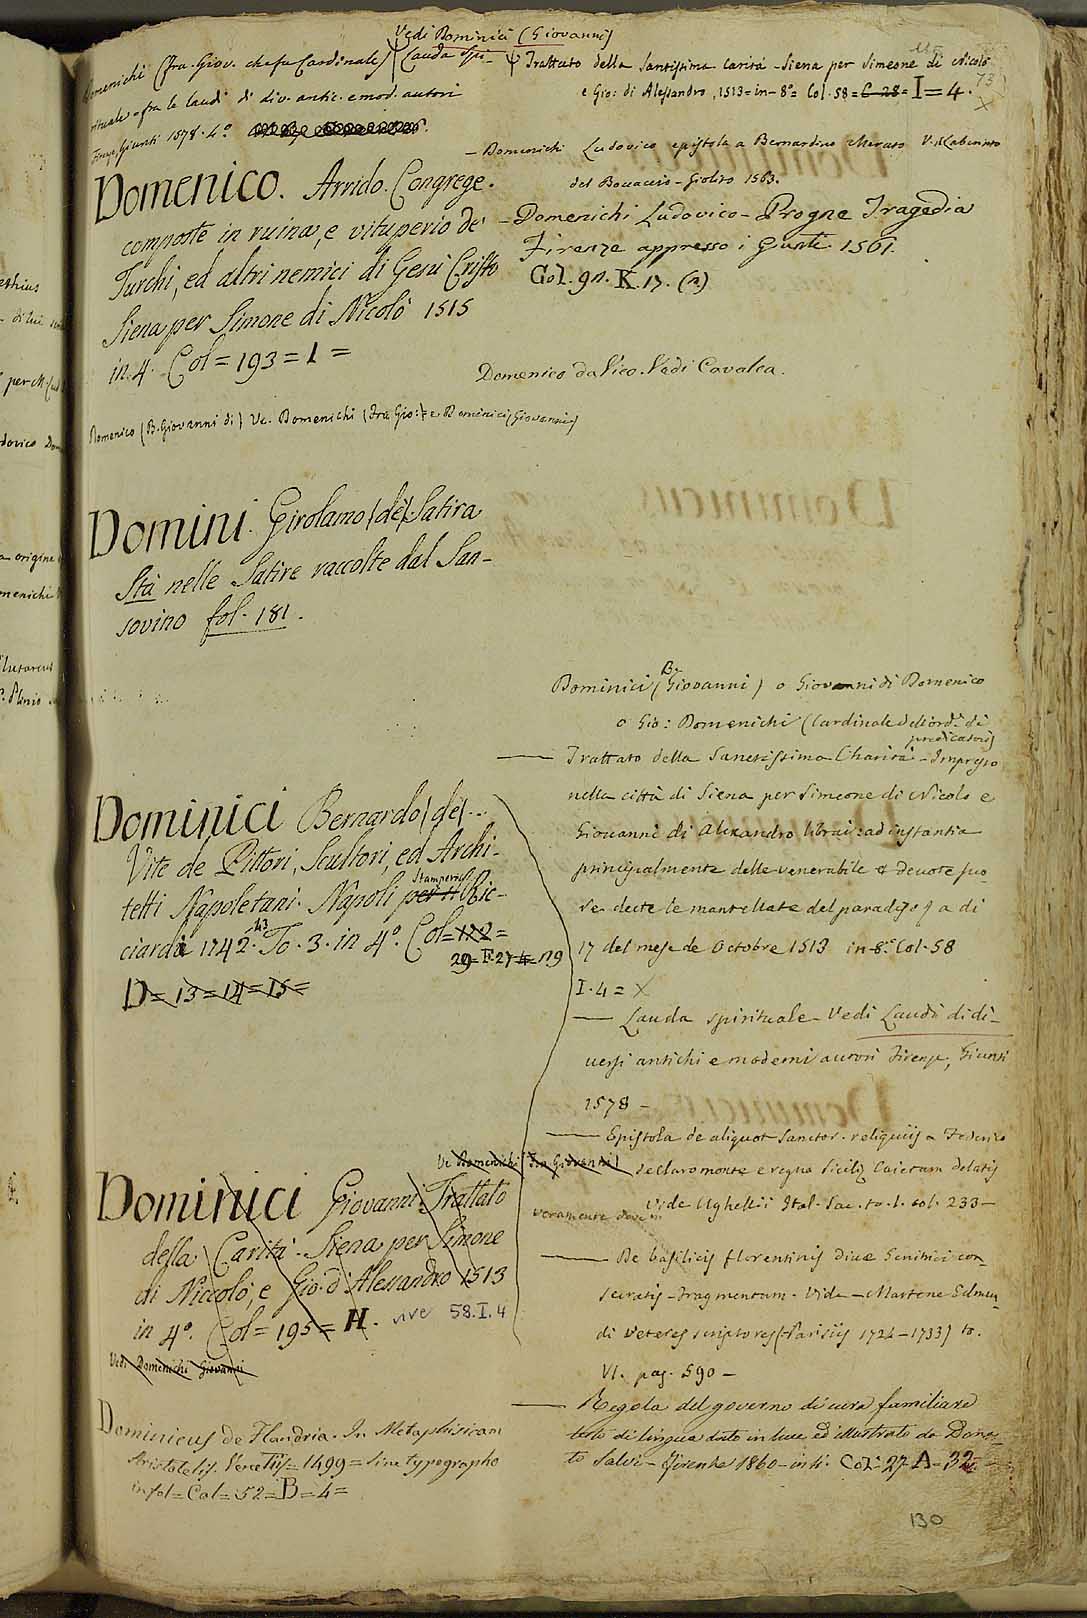 Vedi Dominici (Giovanni)
Domenichi (Fra. Giov. che fu Cardinale) Lauda Spi-
rituale = fra le laudi di div. antic. e mod. autori
Giunti 1578. 4º
Trattato della Santissima Carità - Siena per Simeone di Nicolò
e Gio: di Alessandro, 1513 = in-8º = Col. 58 = C-28 = I = 4.
73
X
- Domenichi Ludovico epistola a Bernardino Merato V. il Laberinto
del Boccaccio - Giolito 1563.
Domenico. Arrido. Congrege.
composte in ruina, e vituperio de'
Turchi, ed altri nemici di Gesù Cristo
Siena per Simone di Nicolò 1515
in 4. Col = 193 = 1 =
- Domenichi Ludovico - Progne Tragedia
Firenze appresso i Giunti 1561.
Col. 91. K. 17. (2)
Domenico da Vico. Vedi Cavalca.
Domenico (B. Giovanni di) Ve. Domenichi (Fra Gio:) e Dominici (Giovanni)
Domini. Girolamo (de). Satira
Stà nelle Satire raccolte dal San-
sovino fol. 181.
Dominici Bernardo (de) ...
Vite de Pittori, Scultori, ed Archi-
tetti Napoletani. Napoli per li Ric-
Stamperia
ciardi 1742. 43 To. 3. in 4º. Col = 122 =
29 = F. 27 4 = 119
D = 13 = 14 = 15 =
Ve Domenichi (Fra Giovanni)
Dominici Giovanni. Trattato
della Carità - Siena per Simone
di Niccolò, e Gio: d'Alessandro 1513
in 4º. Col = 195 = H. 58. I. 4
Vedi Domenichi Giovanni
Dominicus de Flandria. In Metaphisicam
Aristotelis. 1499 = sine typographo
in fol = Col = 52 = B = 4 =
Dominici (B. Giovanni) o Giovanni di Domenico
o Gio: Domenichi (Cardinale dell'ord. di
predicatori)
— Trattato della Sanctissima Charità - Impresso
nella città di Siena per Simeone di Nicolo e
Giovanni di Alixandro librai: ad instantia
principalmente delle venerabile & devote suo-
re decte le mantellate del paradiso / a di
17 del mese de Octobre 1513 in-8º Col. 58
I. 4 = X
— Lauda spirituale - Vedi Laudi di di-
versi antichi e moderni autori Firenze, Giunti
1578 -
— Epistola de aliquot Sanctor. reliquiis a Federico
de Claromonte e regno Sicilię Caietam delatis
Vide Ughellii Ital. Sac. to. 1. col. 233 -
veramente deve
— De basilicis florentinis divæ con-
secratis - Fragmentum - Vide - Martene Edmun-
di Veteres scriptores (Parisiis 1724-1733) to.
VI. pag. 590 -
— Regola del governo di cura familiare
testo di lingua dato in luce ed illustrato da Dona-
to Salvi - Firenze 1860 - Col. 27. A. 32.
130